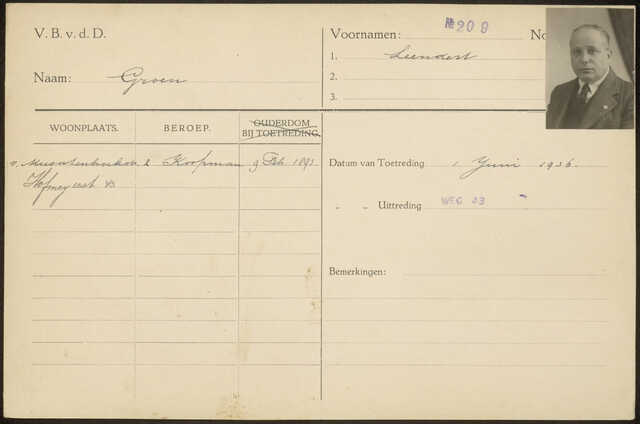 V. B. v. d. D.
Naam: Groen
WOONPLAATS. BEROEP. OUDERDOM BIJ TOETREDING.
Koopman 9 Feb. 1891
Voornamen: № 209 No
1. Leendert
2.
3.
Datum van Toetreding 1 Juni 1936.
„ „ Uittreding WEG 43
Bemerkingen: